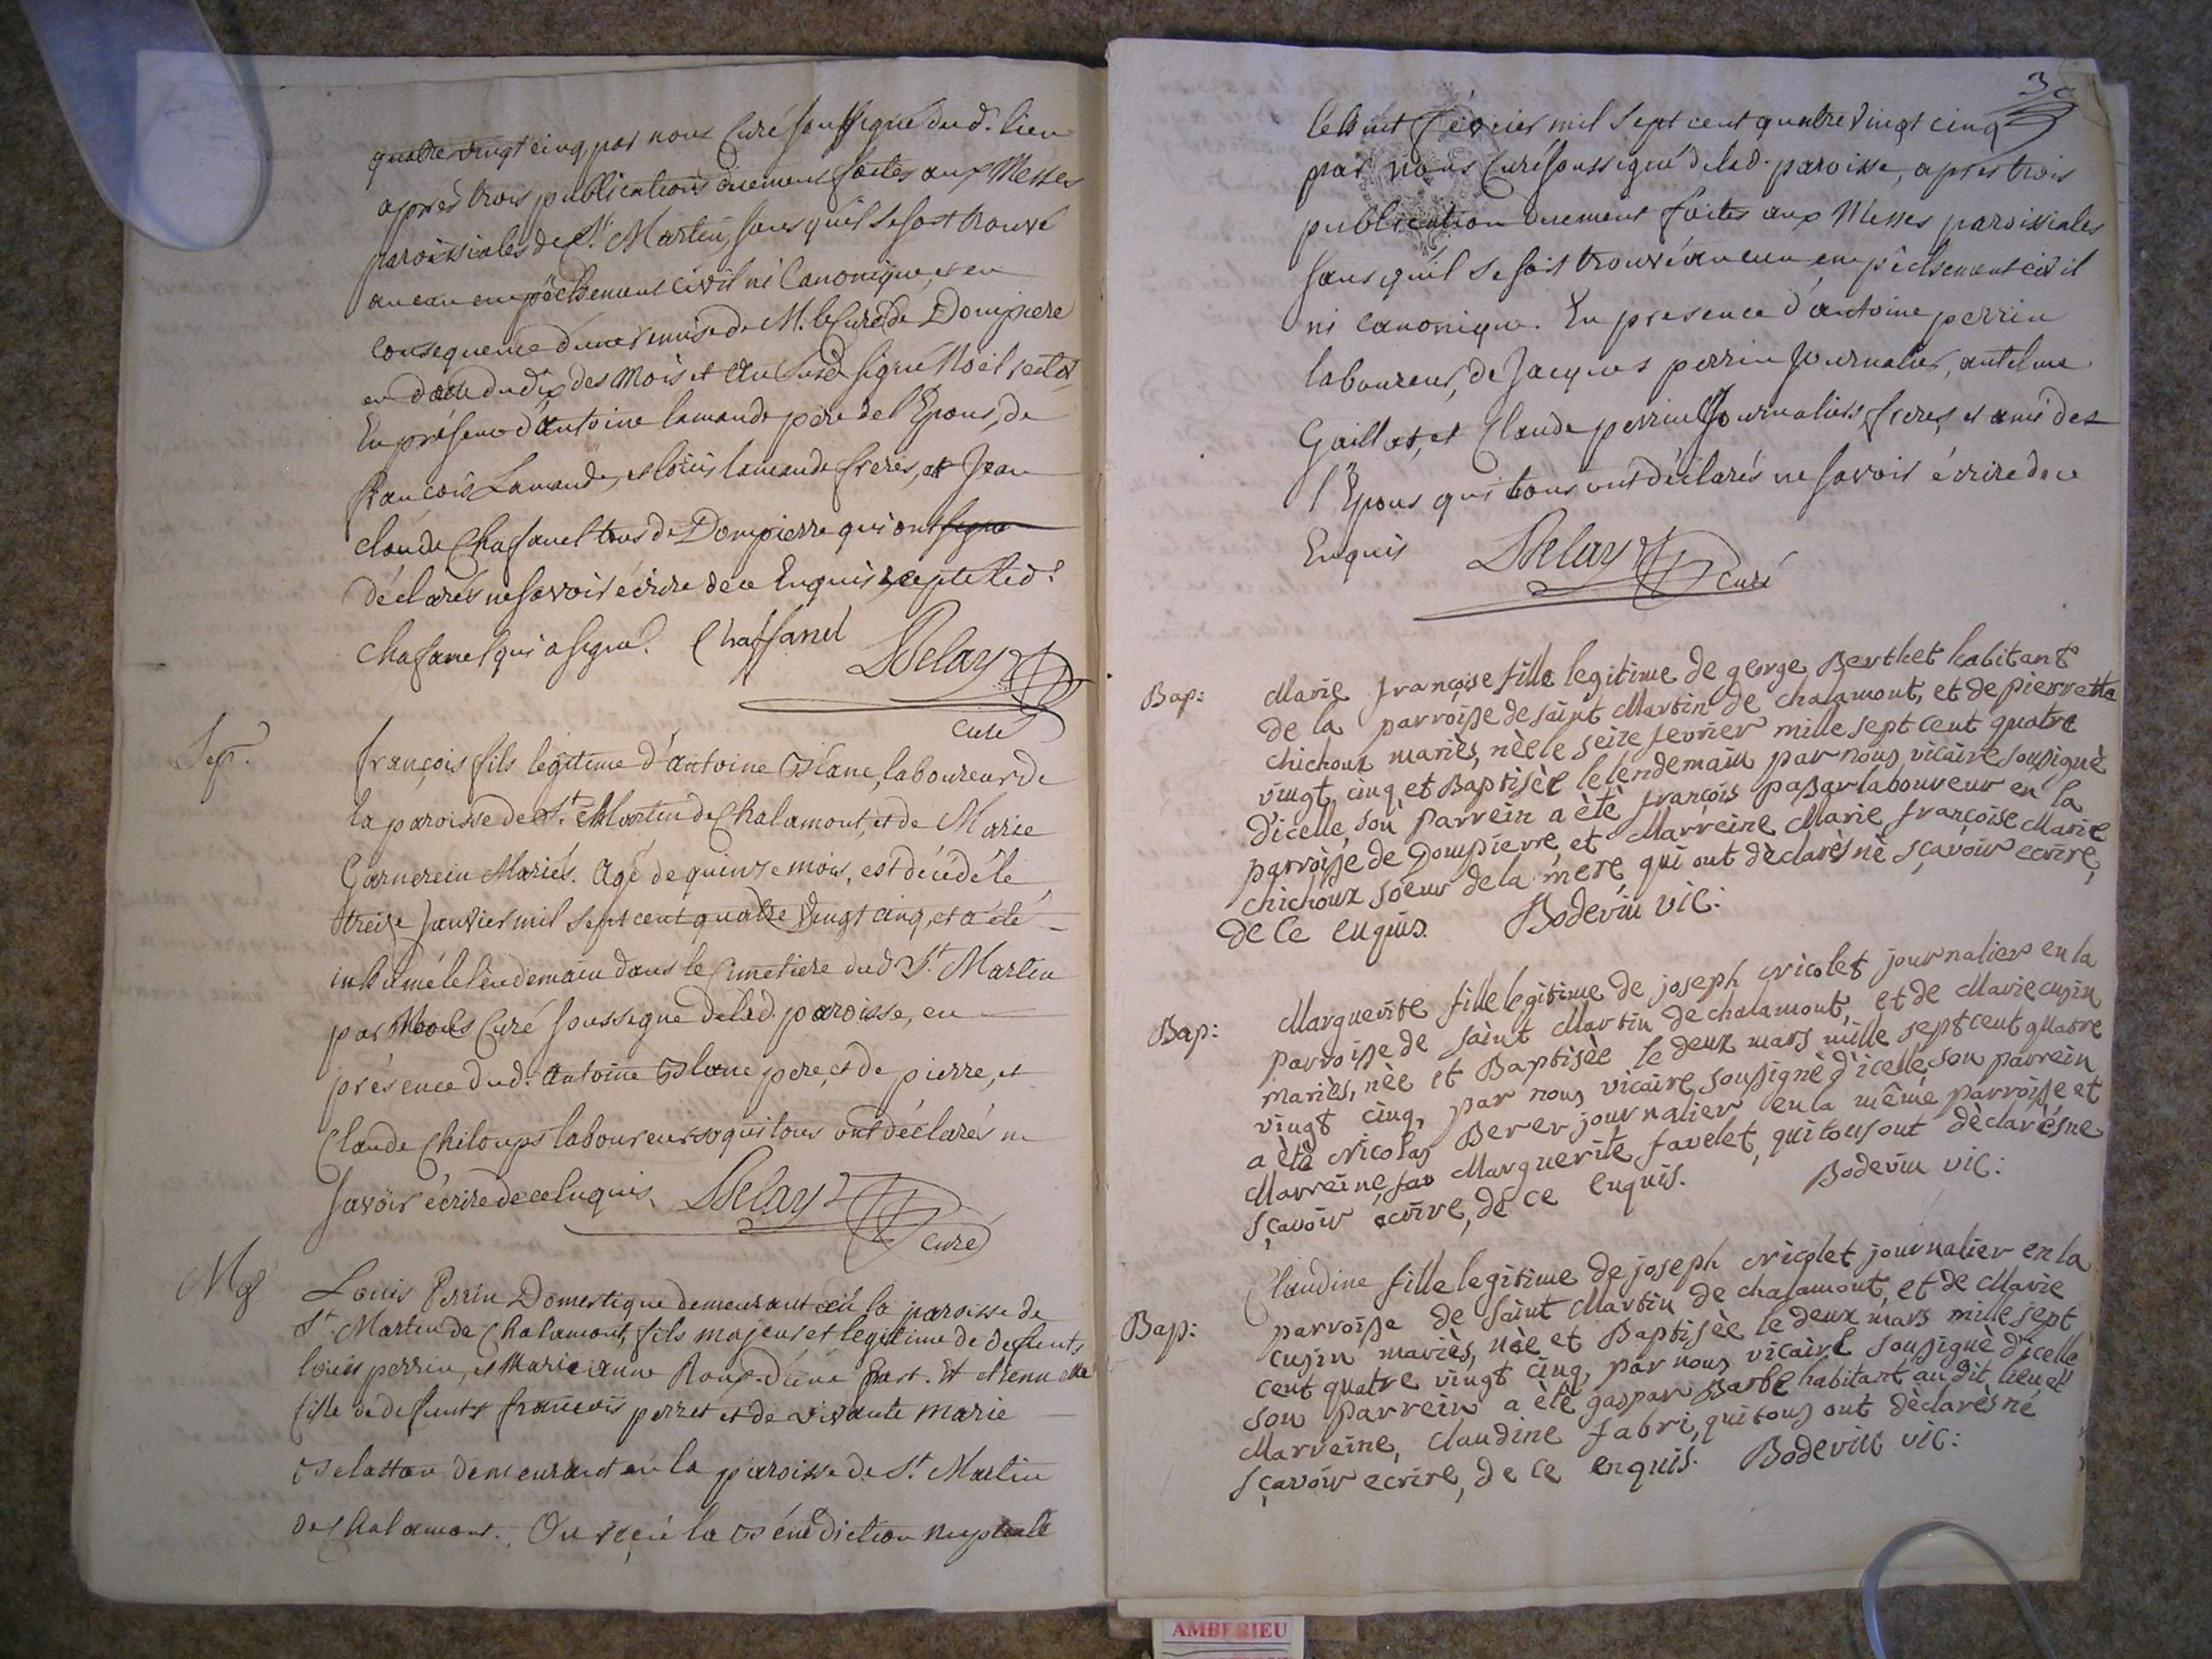 quatre vingt cinq, par nous Curé soussigné dud. lieu
après trois publications duement faites aux Messes
paroissiales de St. Martin, sans qu'il se soit trouvé
aucun empêchement civil ni Canonique, et en
consequence d'une remise de M. le Curé de Dompiere
en date du dix des Mois et An susd. signé Noël
En présence d'Antoine lamande père de l'Epoux, de
françois Lamande, et loüis lamande freres, et Jean
claude Chafanel tous de Dompierre qui ont signé
déclarés ne savoir écrire de ce Enquis excepté led.
chafanel qui a signé. Chaffanel Delay
curé
Sep.
françois fils légitime d'antoine Blanc, laboureur de
la paroisse de St. Martin de Chalamont, et de Marie
Garnerein Mariés. Agé de quinze mois, est décédé le
treize Janvier mil sept cent quatre vingt cinq, et a été
inhumé le lendemain dans le Cimetiere dud. St. Martin
par Nous Curé soussigné de lad. paroisse, en
présence dud. Antoine Blanc pere, et de pierre, et
Claude Chiloups laboureurs qui tous ont déclarés ne
savoir écrire de ce Enquis. Delay
curé
Mag
Louis Perrin Domestique demeurant en la paroisse de
St. Martin de Chalamont, fils majeur et legitime de defunts
loüis perrin, et Marie anne Roux d'une Part. Et etiennette
fille de defunts françois perret et de vivante marie
Belatton demeurant en la paroisse de St. Martin
de Chalamont. On reçu la Bénédiction nuptiale
3
le huit fevrier mil sept cent quatre vingt cinq
par nous Curé soussigné de lad. paroisse, apres trois
publication duement faites aux Messes paroissiales
sans qu'il se soit trouvé aucun empêchement civil
ni canonique. En presence d'antoine perrin
laboureur, de Jacques perrin Journalier, antelme
Gaillot, et Claude perrin Journaliers, freres, et ami des
l'Epoux qui tous ont déclarés ne savoir écrire de ce
Enquis Delay
curé
Bap:
Marie françoise fille legitime de george Berthet habitant
de la parroisse de saint Martin de chalamont, et de pierrette
chichoux mariès, nèe le seize fevrier mille sept cent quatre
vingt cinq, et Baptisèe le lendemain par nous vicaire sousignè
d'icelle, son parrein a ètè françois paßar laboureur en la
parroisse de Dompierre, et Marreine Marie françoise Marie
chichoux soeur de la mere qui ont dèclarès nè sçavoir ecrire,
de ce enquis. Bodevin vic:
Bap:
Marguerite fille legitime de joseph Nicolet journalier en la
parroisse de saint Martin de chalamont, et de Marie cusin
mariès, nèe et Baptisèe le deux mars mille sept cent quatre
vingt cinq, par nous vicaire sousignè d'icelle, son parrein
a ètè Nicolas Berer journalier en la même parroisse et
Marreine, Marguerite favelet, qui tous ont dèclarès ne
sçavoir ecrire, de ce enquis. Bodevin vic:
Bap:
Claudine fille legitime de joseph Nicolet journalier en la
parroisse de saint Martin de chalamont, et de Marie
cusin mariès, nèe et Baptisèe le deux mars mille sept
cent quatre vingt cinq, par nous vicaire sousignè d'icelle
son parrein a ètè gaspar Barbe habitant au dit lieu et
Marreine, claudine fabri, qui tous ont dèclarès ne
sçavoir ecrire, de ce enquis. Bodevin vic:
AMBERIEU